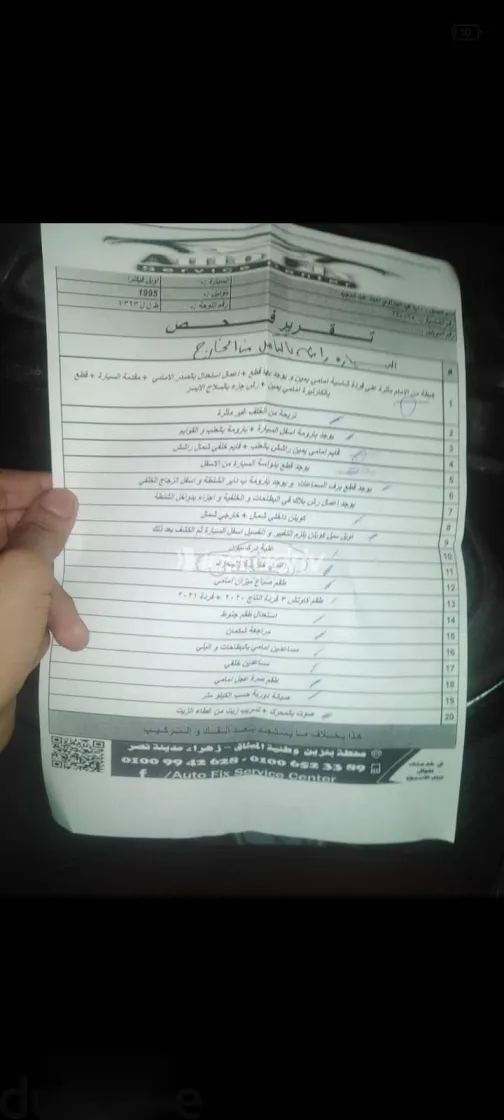 Service Center
السيارة :ـ
اوبل فيكترا
موديل :ـ
1995
رقم اللوحة :ـ
تقرير فحص
السيارة راشة بالكامل من الخارج
#
1
خبطة من الامام مؤثرة على فردة شاسية امامي يمين و يوجد بها قطع + اعمال استعدال بالصدر الامامي + مقدمة السيارة + قطع
بالفارليرة امامي يمين + رش جزء بالسلاح الايسر
نزيحة من الخلف غير مؤثرة
2
يوجد بارومة اسفل السيارة + بارومة بالعتب و القوايم
3
قايم امامي يمين راشش بالعتب + قايم خلفي شمال راشش
4
يوجد قطع بدواسة السيارة من الاسفل
5
يوجد قطع برف السماعات و يوجد بارومة ب داير الشنطة و اسفل الزجاج الخلفي
6
يوجد اعمال رش بلاك في البطاحات و الخلفية و اجزاء بدواخل الشنطة
7
كوبلن داخلي شمال + خارجي شمال
8
اويل سيل كوبلن يلزم التغيير و الغسيل اسفل السيارة ثم الكشف بعد ذلك
9
10
11
12
طقم صباع ميزان امامي
13
طقم كاوتش ٣ فردة انتاج ٢٠٢٠ + فردة ٢٠٢١
14
استعدال طقم جنوط
15
مراجعة شكمان
16
مساعدين امامي بالبطاحات و البلي
17
مساعدين خلفي
18
طقم صرة عجل امامي
19
صيانة دورية حسب الكيلو متر
20
صوت بالمحرك + تسريب زيت من غطاء الزيت
هذا بخلاف ما يستجد بعد الفك و التركيب
محطة بنزين وطنية الميثاق - زهراء مدينة نصر
0100 99 42 628 - 0100 652 33 89
/Auto Fix Service Center
في خدمتك
طوال
ايام الاسبوع